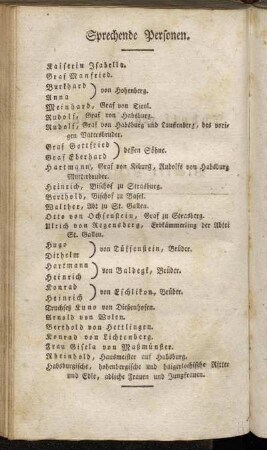 Sprechende Personen.
Kaiserin Isabella.
Graf Manfried.
Burkhard
Anna
von Hohenberg.
Meinhard, Graf von Tirol.
Rudolf, Graf von Habsburg.
Rudolf, Graf von Habsburg und Lauffenberg, des vori-
gen Vatersbruder.
Graf Gottfried
Graf Eberhard
dessen Söhne.
Hartmann, Graf von Kiburg, Rudolfs von Habsburg
Mutterbruder.
Heinrich, Bischof zu Strasburg.
Berthold, Bischof zu Basel.
Walther, Abt zu St. Gallen.
Otto von Ochsenstein, Graf zu Strasberg.
Ulrich von Regensberg, Erbkämmerling der Abtei
St. Gallen.
Hugo
Dithelm
von Tüffenstein, Brüder.
Hartmann
Heinrich
von Baldegk, Brüder.
Konrad
Heinrich
von Eschlikon, Brüder.
Truchseß Kuno von Dießenhofen.
Arnold von Wolen.
Gerthold von Hettlingen.
Konrad von Lichtenberg.
Frau Gisela von Maßmünster.
Rheinhold, Hausmeister auf Habsburg.
Habsburgische, hohenbergische und haigerlochische Ritter
und Edle, adliche Frauen und Jungfrauen.